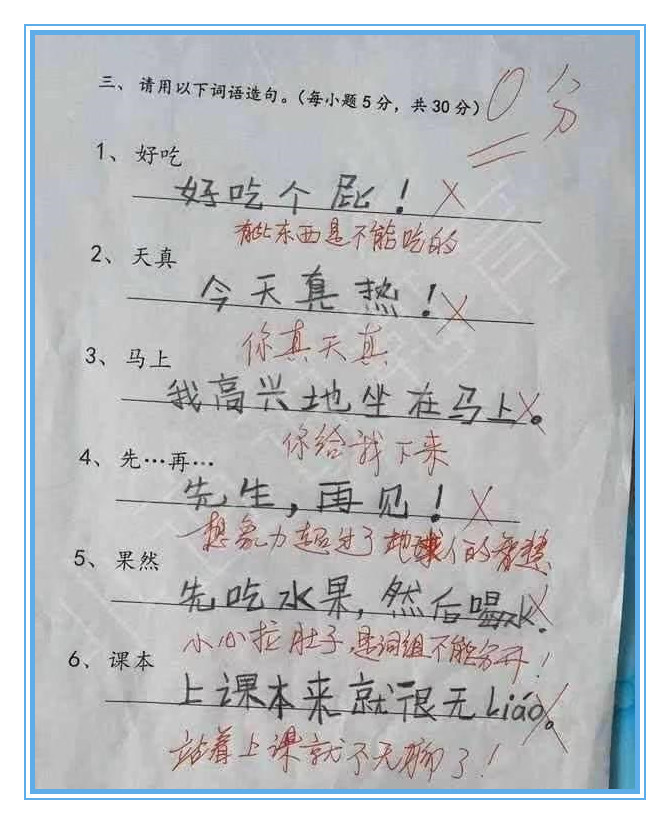 三、请用以下词语造句。(每小题5分，共30分) 0分
1、好吃
好吃个屁！
有些东西是不能吃的
2、天真
今天真热！
你真天真
3、马上
我高兴地坐在马上。
你给我下来
4、先…再…
先生，再见！
想象力超过了地球人的智慧
5、果然
先吃水果，然后喝水.
小心拉肚子，是词组不能分开！
6、课本
上课本来就很无liáo。
站着上课就不无聊了！